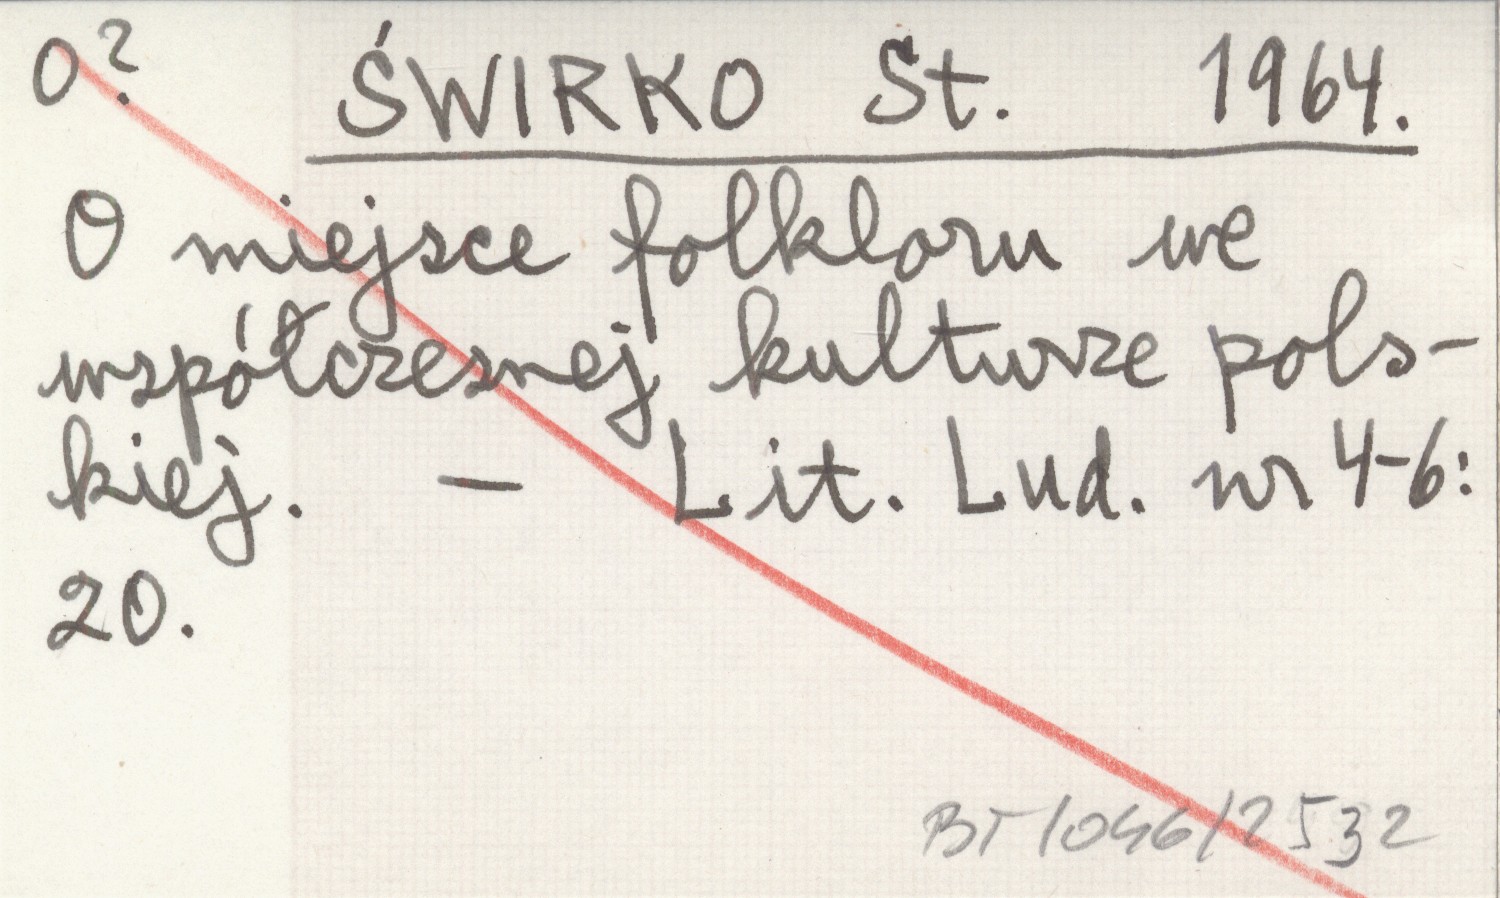 O?
ŚWIRKO St. 1964.
O miejsce folkloru we
współczesnej kulturze pols-
kiej. — Lit. Lud. nr 4-6:
20.
BT/046/2532